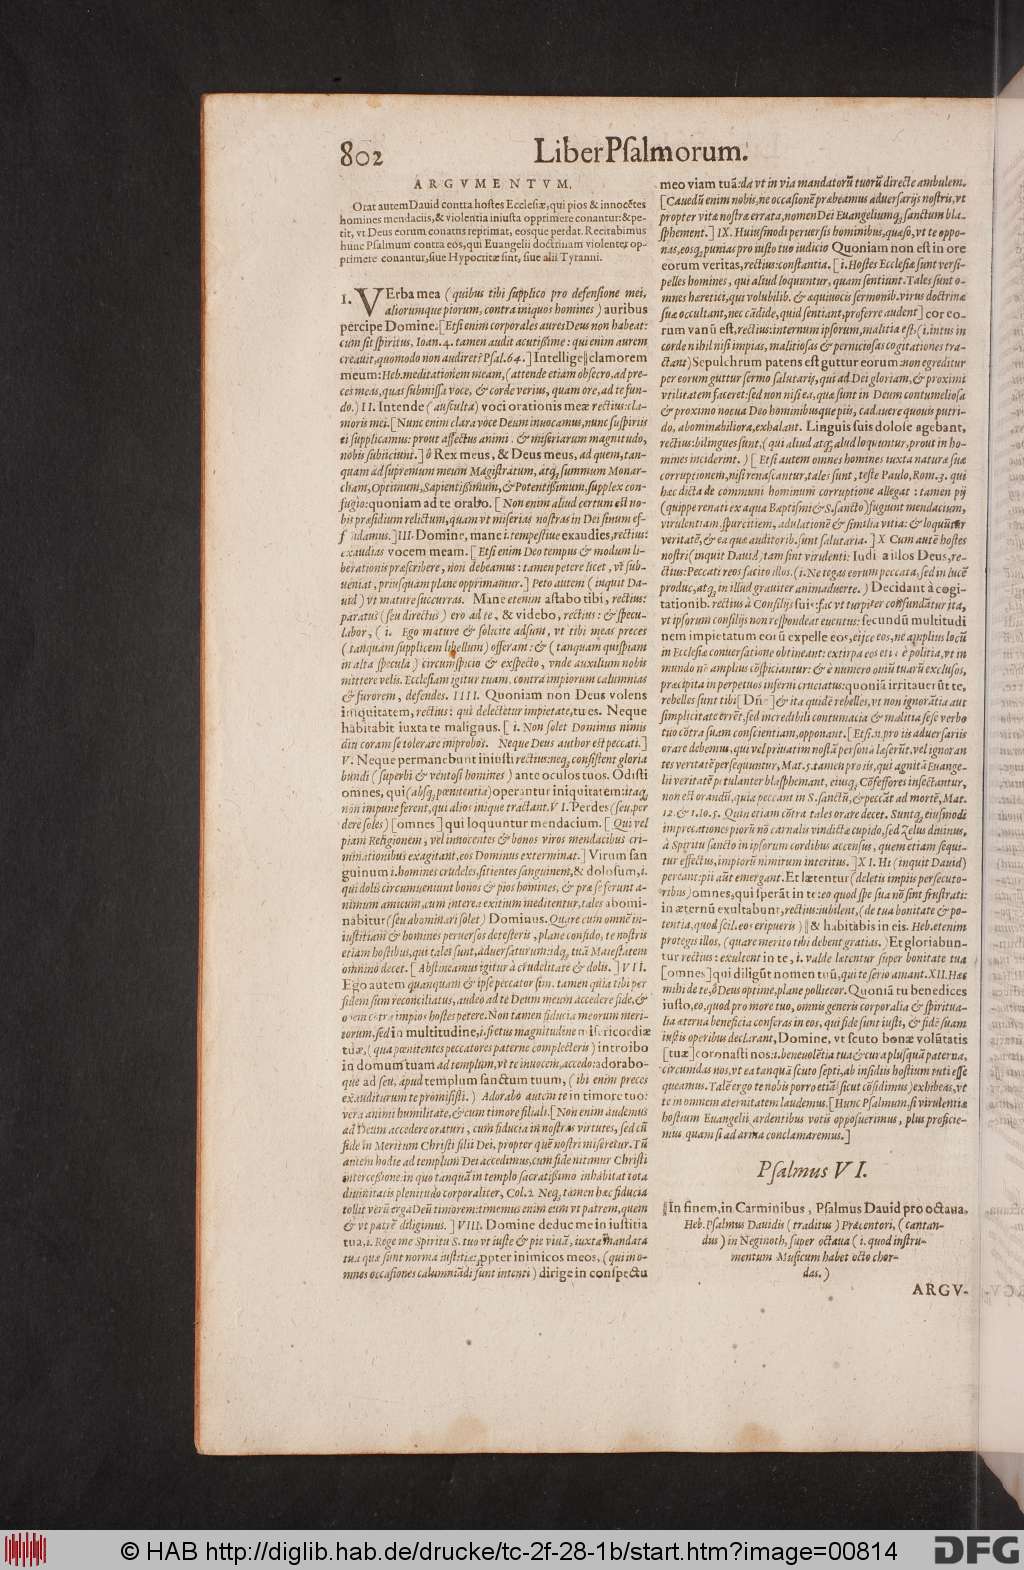 802
Liber Psalmorum.
ARGVMENTVM.
Orat autem Dauid contra hostes Ecclesiæ, qui pios & innocẽtes
homines mendaciis, & violentia iniusta opprimere conantur: & pe-
tit, vt Deus eorum conatus reprimat, eosque perdat. Recitabimus
hunc Psalmum contra eos, qui Euangelii doctrinam violenter op-
primere conantur, siue Hypocritæ sint, siue alii Tyranni.
I. VErba mea (quibus tibi supplico pro defensione mei,
aliorumque piorum, contra iniquos homines) auribus
percipe Domine. [Etsi enim corporales aures Deus non habeat:
cum sit spiritus, Ioan. 4. tamen audit acutißime: qui enim aurem
creauit, quomodo non audiret? Psal. 64.] Intellige‖clamorem
meum: Heb. meditationem meam, (attende etiam obsecro, ad pre-
ces meas, quas submissa voce, & corde verius, quam ore, ad te fun-
do.) II. Intende (ausculta) voci orationis meæ rectius: cla-
moris mei. [Nunc enim clara voce Deum inuocamus, nunc suspiriis
ei supplicamus: prout affectus animi, & miseriarum magnitudo,
nobis subiiciunt.] ô Rex meus, & Deus meus, ad quem, tan-
quam ad supremum meum Magistratum, atq; summum Monar-
cham, Optimum, Sapientißimum, & Potentißimum, supplex con-
fugio: quoniam ad te orabo. [Non enim aliud certum est no-
bis præsidium relictum, quam vt miserias nostras in Dei sinum ef-
fundamus.] III. Domine, mane i. tempestiue exaudies, rectius:
exaudias vocem meam. [Etsi enim Deo tempus & modum li-
berationis præscribere, non debeamus: tamen petere licet, vt sub-
ueniat, priusquam plane opprimamur.] Peto autem (inquit Da-
uid) vt mature succurras. Mane etenim astabo tibi, rectius:
paratus (seu directus) ero ad te, & videbo, rectius: & specu-
labor, (i. Ego mature & solicite adsum, vt tibi meas preces
(tanquam supplicem libellum) offeram: & (tanquam quispiam
in alta specula) circumspicio & exspecto, vnde auxilium nobis
mittere velis. Ecclesiam igitur tuam, contra impiorum calumnias
& furorem, defendes. IIII. Quoniam non Deus volens
iniquitatem, rectius: qui delectetur impietate, tu es. Neque
habitabit iuxta te malignus. [i. Non solet Dominus nimis
diu coram se tolerare improbos. Neque Deus author est peccati.]
V. Neque permanebunt iniusti rectius: neq; consistent gloria
bundi (superbi & ventosi homines) ante oculos tuos. Odisti
omnes, qui (absq; pœnitentia) operantur iniquitatem: itaq;
non impune ferent, qui alios inique tractant. VI. Perdes (seu, per
dere soles) [omnes] qui loquuntur mendacium. [Qui vel
piam Religionem, vel innocentes & bonos viros mendacibus cri-
minationibus exagitant, eos Dominus exterminat.] Virum san
guinum i. homines crudeles, sitientes sanguinem, & dolosum, i.
qui dolis circumueniunt bonos & pios homines, & præ se ferunt a-
nimum amicum, cum interea exitium meditentur, tales abomi-
nabitur (seu abominari solet) Dominus. Quare cum omnẽ in-
iustitiam & homines peruersos detesteris, plane confido, te nostris
etiam hostibus, qui tales sunt, aduersaturum: idq; tuã Maiestatem
omnino decet. [Abstineamus igitur à crudelitate & dolis.] VII.
Ego autem quanquam & ipse peccator sim, tamen quia tibi per
fidem sum reconciliatus, audeo ad te Deum meum accedere fide, &
opem cõtra impios hostes petere. Non tamen fiducia meorum meri-
torum, sed in multitudine, i. fretus magnitudine misericordiæ
tuæ, (qua pœnitentes peccatores paterne complecteris) introibo
in domum tuam ad templum, vt te inuocem, accedo: adorabo-
que ad seu, apud templum sanctum tuum, (ibi enim preces
exauditurum te promisisti.) Adorabo autem te in timore tuo:
vera animi humilitate, & cum timore filiali. [Non enim audemus
ad Deum accedere oraturi, cum fiducia in nostras virtutes, sed cũ
fide in Meritum Christi filii Dei, propter quẽ nostri miseretur. Tũ
autem hodie ad templum Dei accedimus, cum fide nitimur Christi
intercessione: in quo tanquã in templo sacratißimo inhabitat tota
diuinitatis plenitudo corporaliter, Col. 2. Neq; tamen hæc fiducia
tollit verũ erga Deũ timorem: timemus enim eum vt patrem, quem
& vt patrẽ diligimus.] VIII. Domine deduc me in iustitia
tua, i. Rege me Spiritu S. tuo vt iuste & pie viuã, iuxta mandata
tua quæ sunt norma iustitiæ, ꝓpter inimicos meos, (qui in o-
mnes occasiones calumniãdi sunt intenti) dirige in conspectu
meo viam tuã: da vt in via mandatorũ tuorũ directe ambulem.
[Cauedũ enim nobis, ne occasionẽ præbeamus aduersarijs nostris, vt
propter vitæ nostræ errata, nomen Dei Euangeliumq; sanctum bla-
sphement.] IX. Huiusmodi peruersis hominibus, quæso, vt te oppo-
nas, eosq; punias pro iusto tuo iudicio Quoniam non est in ore
eorum veritas, rectius: constantia. [i. Hostes Ecclesiæ sunt versi-
pelles homines, qui aliud loquuntur, quam sentiunt. Tales sunt o-
mnes hæretici, qui volubilib. & æquiuocis sermonib. virus doctrinæ
suæ occultant, nec cãdide, quid sentiant, proferre audent] cor eo-
rum vanũ est, rectius: internum ipsorum, malitia est, (i. intus in
corde nihil nisi impias, malitiosas & perniciosas cogitationes tra-
ctant) Sepulchrum patens est guttur eorum: non egreditur
per eorum guttur sermo salutaris, qui ad Dei gloriam, & proximi
vtilitatem faceret: sed non nisi ea, quæ sunt in Deum contumeliosa
& proximo noxia Deo hominibusque piis, cadauere quouis putri-
do, abominabiliora, exhalant. Linguis suis dolose agebant,
rectius: bilingues sunt, (qui aliud atq; aliud loquuntur, prout in ho-
mines inciderint.) [Etsi autem omnes homines iuxta naturæ suæ
corruptionem, nisi renascantur, tales sunt, teste Paulo, Rom. 3. qui
hæc dicta de communi hominum corruptione allegat: tamen pij
(quippe renati ex aqua Baptismi & S. sancto) fugiunt mendacium,
virulentiam, spurcitiem, adulationẽ & similia vitia: & loquũtur
veritatẽ, & ea quæ auditorib. sunt salutaria.] X Cum autẽ hostes
nostri (inquit Dauid) tam sint virulenti: Iudica illos Deus, re-
ctius: Peccati reos facito illos. (i. Ne tegas eorum peccata, sed in lucẽ
produc, atq; in illud grauiter animaduerte.) Decidant à cogi-
tationib. rectius à Consilijs suis: fac vt turpiter confundãtur ita,
vt ipsorum consilijs non respondeat euentus: secundũ multitudi
nem impietatum eorũ expelle eos, eijce eos, ne amplius locũ
in Ecclesiæ conuersatione obtineant: extirpa eos etiã è politia, vt in
mundo nõ amplius cõspiciantur: & è numero omiũ tuarũ exclusos,
præcipita in perpetuos inferni cruciatus: quoniã irritauerũt te,
rebelles sunt tibi [Dñe] & ita quidẽ rebelles, vt non ignorãtia aut
simplicitate errẽt, sed incredibili contumacia & malitia sese verbo
tuo cõtra suam conscientiam, opponant. [Etsi .n. pro iis aduersariis
orare debemus, qui vel priuatim nostã personã læserũt, vel ignoran
tes veritatẽ persequuntur, Mat. 5. tamen pro iis, qui agnitã Euange-
lii veritatẽ petulanter blasphemant, eiusq; Cõfessores insectantur,
non est orandũ, quia peccant in S. sanctũ, & peccãt ad mortẽ, Mat.
12. & 1. Io. 5. Quin etiam cõtra tales orare decet. Suntq; eiusmodi
imprecationes piorũ nõ carnalis vindictæ cupido, sed Zelus diuinus,
à Spiritu sancto in ipsorum cordibus accensus, quem etiam sequi-
tur effectus, impiorũ nimirum interitus.] XI. Hi (inquit Dauid)
pereant: pii aũt emergant. Et lætentur (deletis impiis persecuto-
ribus) omnes, qui sperãt in te: eo quod spe sua nõ sint frustrati:
in æternũ exultabunt, rectius: iubilent, (de tua bonitate & po-
tentia, quod scil. eos eripueris) ‖& habitabis in eis. Heb. etenim
proteges illos, (quare merito tibi debent gratias.) Et gloriabun-
tur rectius: exultent in te, i. valde lætentur super bonitate tua
[omnes] qui diligũt nomen tuũ, qui te serio amant. XII. Hæc
mihi de te, ô Deus optime, plane polliceor. Quoniã tu benedices
iusto, eo, quod pro more tuo, omnis generis corporalia & spiritua-
lia æterna beneficia conferas in eos, qui fide sunt iusti, & fidẽ suam
iustis operibus declarant, Domine, vt scuto bonæ volũtatis
[tuæ] coronasti nos: i. beneuolẽtia tua & cura plusquã paterna,
circumdas nos, vt ea tanquã scuto septi, ab insidiis hostium tuti esse
queamus. Talẽ ergo te nobis porro etiã (sicut cõfidimus) exhibeas, vt
te in omnem æternitatem laudemus. [Hunc Psalmum, si virulentiæ
hostium Euangelii ardentibus votis opposuerimus, plus proficie-
mus quam si ad arma conclamaremus.]
Psalmus VI.
‖In finem, in Carminibus, Psalmus Dauid pro octaua,
Heb. Psalmus Dauidis (traditus) Præcentori, (cantan-
dus) in Neginoth, super octaua (i. quod instru-
mentum Musicum habet octo chor-
das.)
ARGV-
© HAB http://diglib.hab.de/drucke/tc-2f-28-1b/start.htm?image=00814
DFG